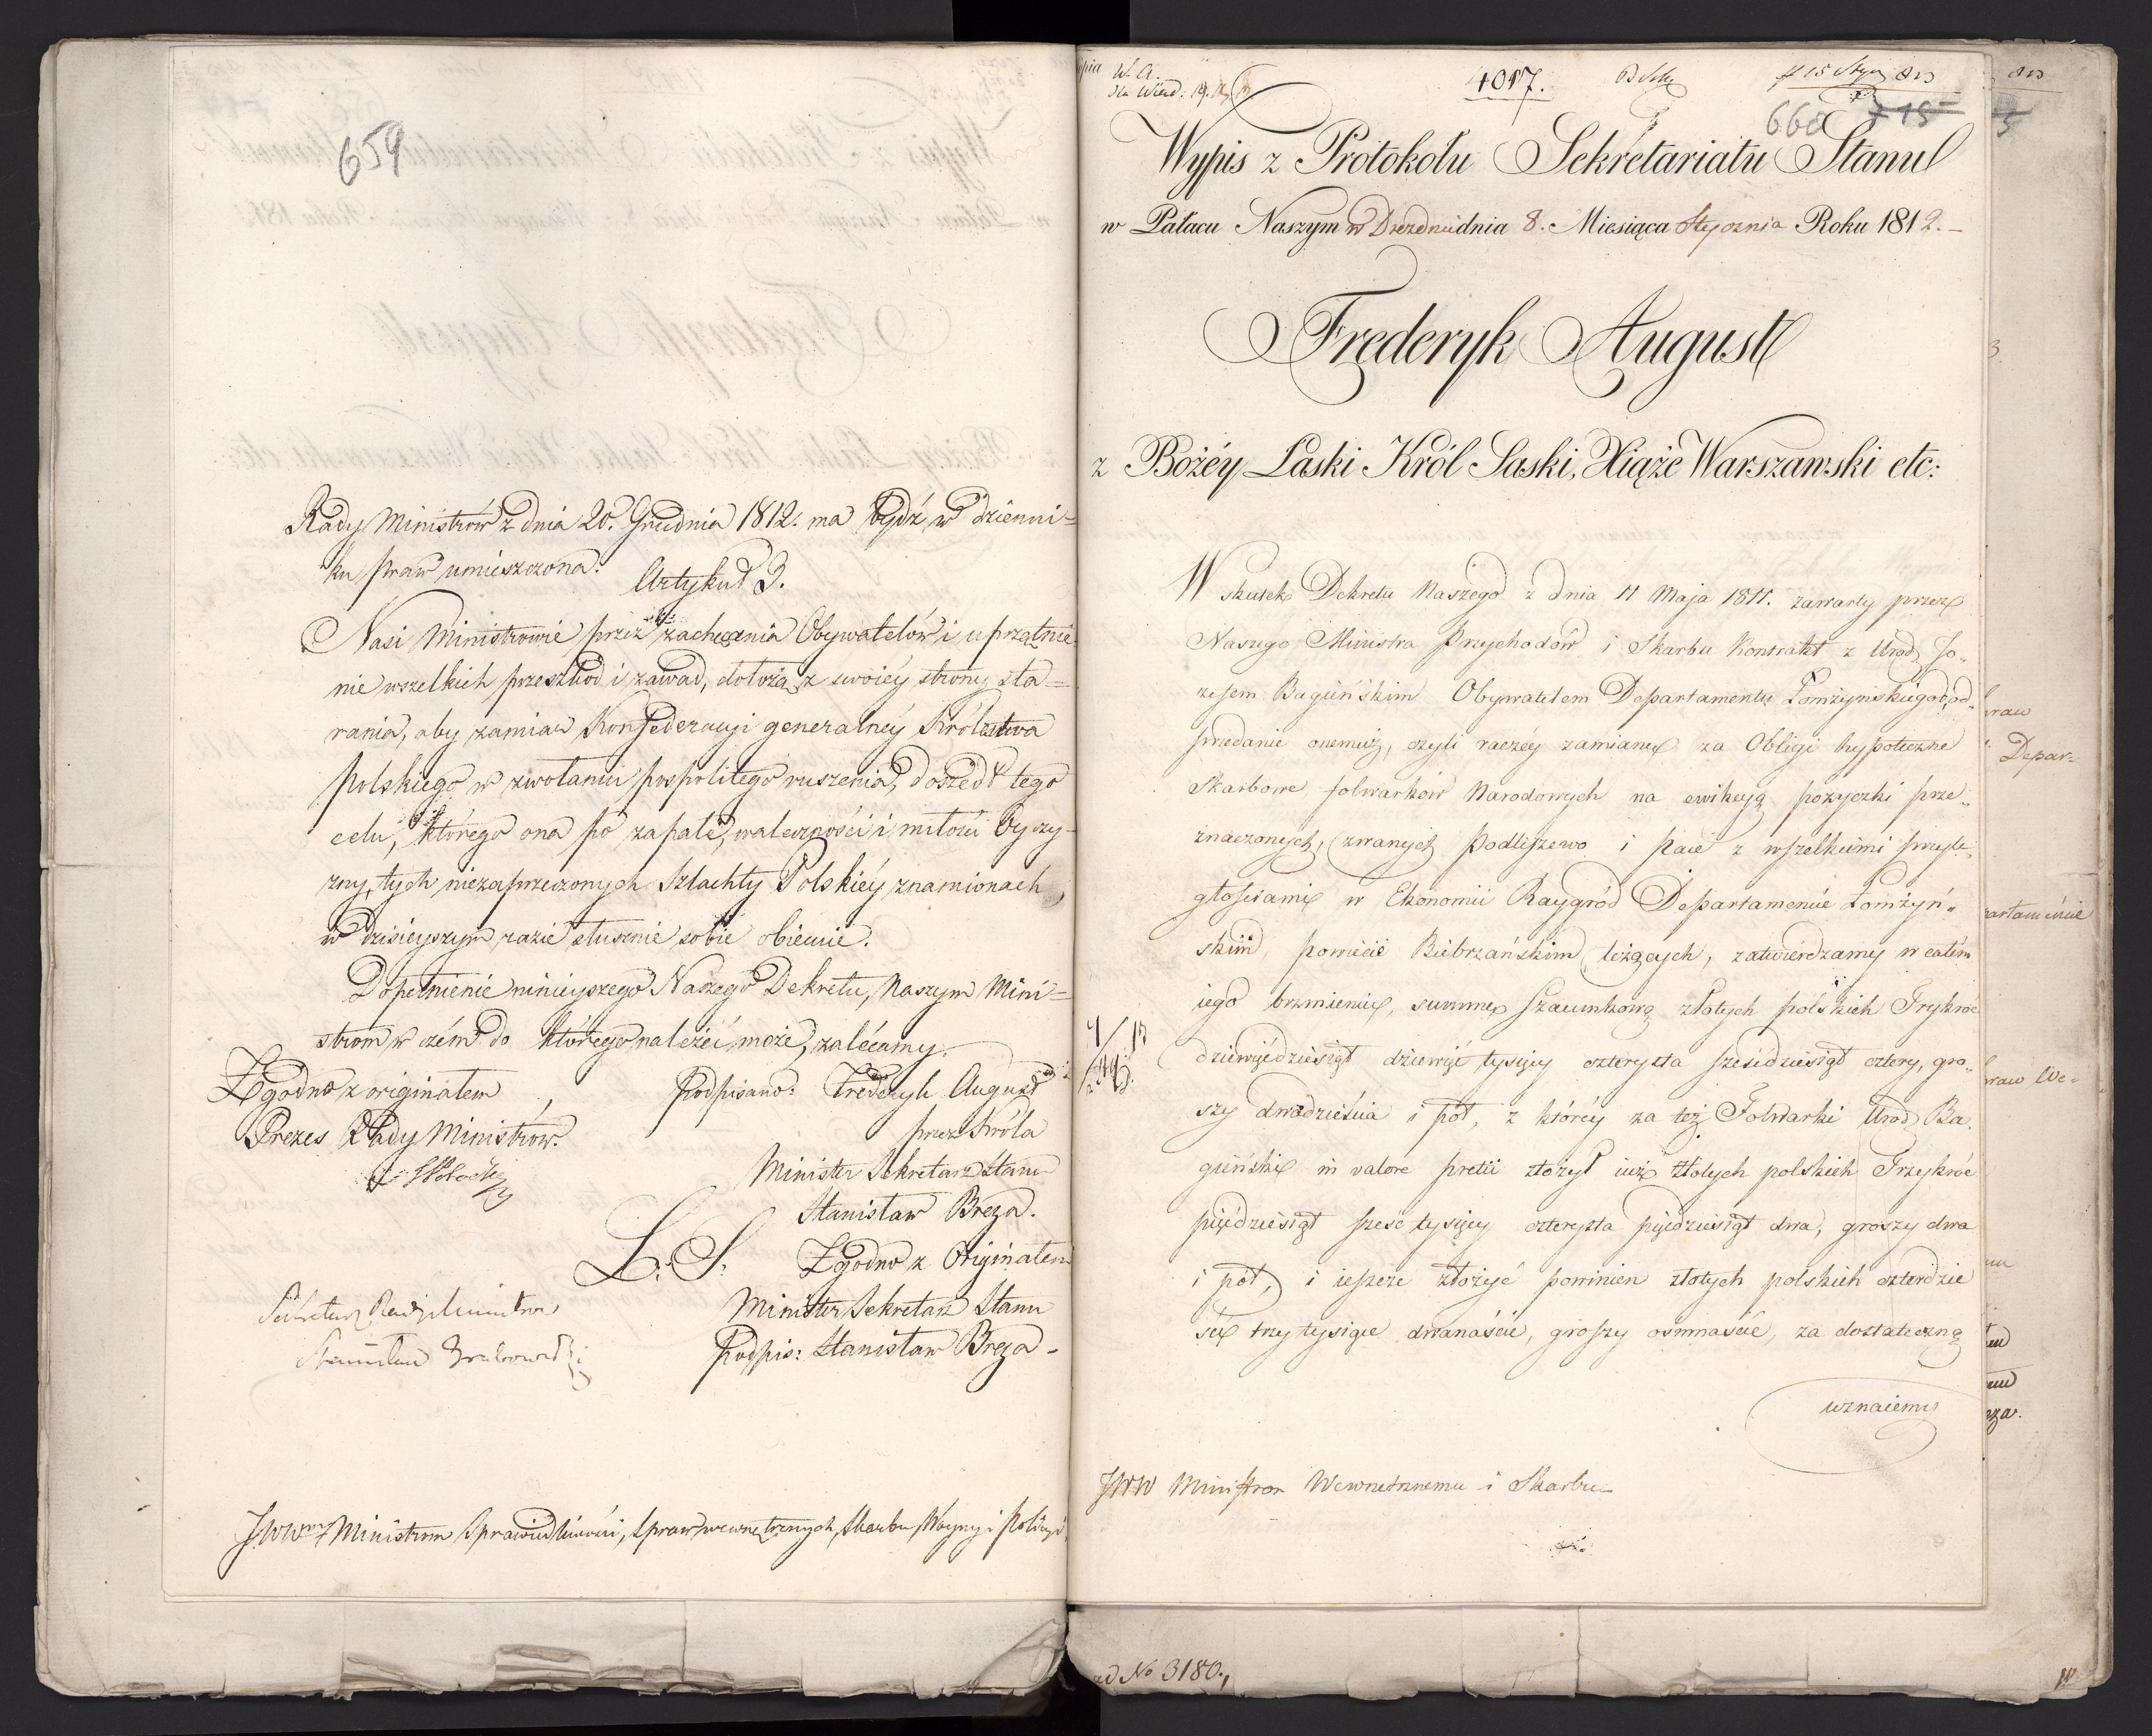 659
Rady Ministrów z dnia 20. Grudnia 1812. ma bydź w dzienni=
ku praw umieszczona.
Artykuł 3.
Nasi Ministrowie przez zachęcenia Obywatelów i uprzątnie
nie wszelkich przeszkód i zawad, dołożą z swoiéy strony sta=
rania, aby zamiar Konfederacyi generalnéy Królestwa
Polskiego w zwołaniu pospolitego ruszenia, doszedł tego
celu, którego ona po zapale, waleczności i miłości Oyczy=
zny, tych niezaprzeczonych Szlachty Polskiéy znamionach,
w dzisieyszym razie słusznie sobie obiecuie.
Dopełnienie ninieyszego Naszego Dekretu, Naszym Mini=
strom w czém do którego należeć może, zalécamy.
Zgodno z originałem
Podpisano: Frederyk August
Prezes Rady Ministrów.
przez Króla
Minister Sekretarz Stanu
Stanisław Breza.
L. S. Zgodno z Originałem
Sekretarz Rady Ministrów
Minister Sekretarz Stanu
Stanisław Grabowski
Podpis: Stanisław Breza -
JWWm Ministrom Sprawiedliwości, Spraw wewnętrznych, Skarbu, Woyny i Policyi
W. A.
4017.
660
15
Wypis z Protokołu Sekretariatu Stanu
w Pałacu Naszym w Dreznie dnia 8. Miesiąca Stycznia Roku 1812.
Frederyk August
z Bożéy Łaski Król Saski, Xiąże Warszawski etc:
W skutek Dekretu Naszego z dnia 11 Maja 1811. zawarty przez
Naszego Ministra Przychodów i Skarbu Kontrakt z Urod. Jo„
zefem Bagińskim Obywatelem Departamentu Łomżyńskiego, od„
przedanie onemuż, czyli raczéy zamianę za Obligi hypoteczne
Skarbowe folwarków Narodowych na ewikcyą pożyczki prze„
znaczonych, zwanych Podliszewo i Pace z wszelkiemi przyle„
głościami w Ekonomii Raygród Departamencie Łomżyń„
skim, powiecie Biebrzańskim leżących, zatwierdzamy w całém
iego brzmieniu, summę szacunkową złotych polskich Trzykroć
dziewięćdziesiąt dziewięć tysięcy czterysta sześćdziesiąt cztery, gro„
szy dwadzieścia i pół, z któréy za też Folwarki Urod. Ba„
giński in valore pretii złożył iuż złotych polskich Trzykroć
pięćdziesiąt sześć tysięcy czterysta pięćdziesiąt dwa, groszy dwa
i pół, i ieszcze złożyć powinien złotych polskich czterdzie
ści trzy tysiące dwanaście, groszy osmnaście, za dostateczną
uznaiemy
JWW Ministrom Wewnetrznemu i Skarbu
ad No 3180.
Depar=